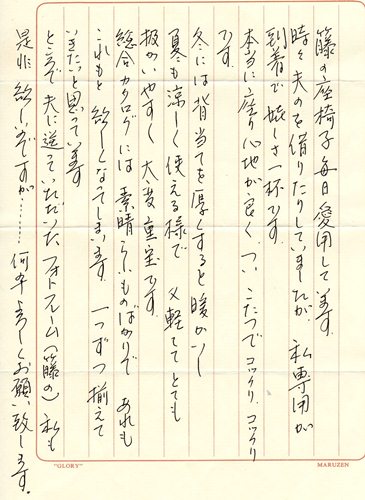 籐の座椅子 毎日愛用して居ます。
時々夫のを借りたりしていましたが 私専用が
到着で嬉しさ一杯です
本当に座り心地が良く、ついこたつでコックリ、コックリ
です。
冬には背当てを厚くすると暖かいし
夏も涼しく使える様で 又軽くてとても
扱かいやすく 大変重宝です。
総合カタログには 素晴らしいものばかりで あれも
これもと 欲しくなってしまいます。一つずつ揃えて
いきたいと思っています
ところで夫に送っていただいた フォトフレーム(籐の) 私も
是非欲しいのですが…… 何卒よろしくお願い致します。
"GLORY"
MARUZEN